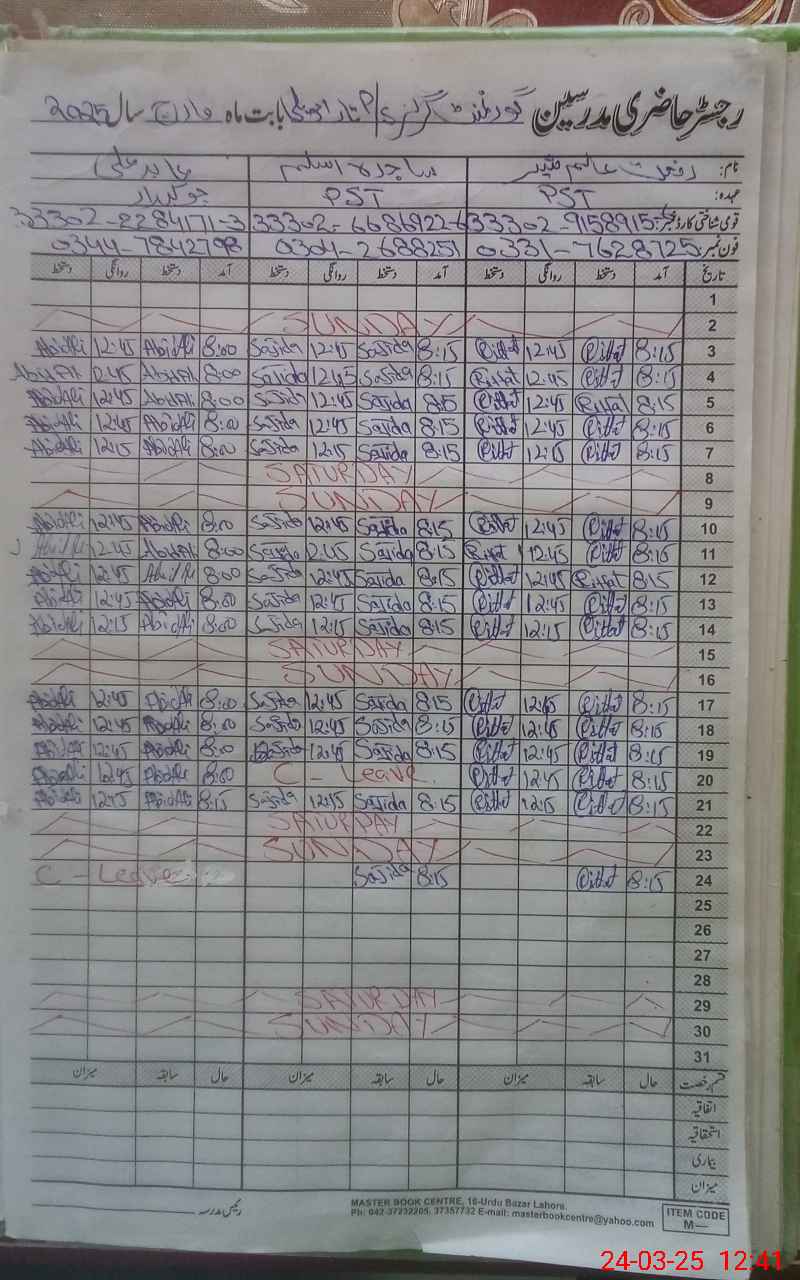 رجسٹر حاضری مدرسین گورنمنٹ گرلز بابت ماہ مارچ سال 2025
نام: رفعت ساجدہ اسلم عابد علی
عہدہ: PST PST چوکیدار
قومی شناختی کارڈ نمبر: 33302-9158915- 33302-6686922-6 33302-2284171-3
فون نمبر: 0331-7628725 0304-2688251 0344-7842798
تاریخ آمد دستخط روانگی دستخط آمد دستخط روانگی دستخط آمد دستخط روانگی دستخط
1
2 SUNDAY
3 8:15 Riffat 12:45 Riffat 8:15 Sajida 12:45 Sajida 8:00 Abid Ali 12:45 Abid Ali
4 8:15 Riffat 12:45 Riffat 8:15 Sajida 12:45 Sajida 8:00 Abid Ali 2:45 Abid Ali
5 8:15 Riffat 12:45 Riffat 8:15 Sajida 12:45 Sajida 8:00 Abid Ali 12:45 Abid Ali
6 8:15 Riffat 12:45 Riffat 8:15 Sajida 12:45 Sajida 8:00 Abid Ali 12:45 Abid Ali
7 8:15 Riffat 12:15 Riffat 8:15 Sajida 12:15 Sajida 8:00 Abid Ali 12:15 Abid Ali
8 SATURDAY
9 SUNDAY
10 8:15 Riffat 12:45 Riffat 8:15 Sajida 12:45 Sajida 8:00 Abid Ali 12:45 Abid Ali
11 8:15 Riffat 12:45 Riffat 8:15 Sajida 2:45 Sajida 8:00 Abid Ali 12:45 Abid Ali
12 8:15 Riffat 12:45 Riffat 8:15 Sajida 12:45 Sajida 8:00 Abid Ali 12:45 Abid Ali
13 8:15 Riffat 12:45 Riffat 8:15 Sajida 12:45 Sajida 8:00 Abid Ali 12:45 Abid Ali
14 8:15 Riffat 12:15 Riffat 8:15 Sajida 12:15 Sajida 8:00 Abid Ali 12:15 Abid Ali
15 SATURDAY
16 SUNDAY
17 8:15 Riffat 12:45 Riffat 8:15 Sajida 12:45 Sajida 8:00 Abid Ali 12:45 Abid Ali
18 8:15 Riffat 12:45 Riffat 8:15 Sajida 12:45 Sajida 8:00 Abid Ali 12:45 Abid Ali
19 8:15 Riffat 12:45 Riffat 8:15 Sajida 12:45 Sajida 8:00 Abid Ali 12:45 Abid Ali
20 8:15 Riffat 12:45 Riffat C - Leave 8:00 Abid Ali 12:45 Abid Ali
21 8:15 Riffat 12:15 Riffat 8:15 Sajida 12:15 Sajida 8:15 Abid Ali 12:15 Abid Ali
22 SATURDAY
23 SUNDAY
24 8:15 Riffat 8:15 Sajida C - Leave
25
26
27
28
29 SATURDAY
30 SUNDAY
31
قسم رخصت حال سابقہ میزان حال سابقہ میزان حال سابقہ میزان
اتفاقیہ
استحقاقیہ
بیماری
میزان
رئیس مدرسہ
MASTER BOOK CENTRE, 16-Urdu Bazar Lahore.
Ph: 042-37232205, 37357732 E-mail: masterbookcentre@yahoo.com
ITEM CODE
M—
24-03-25 12:41